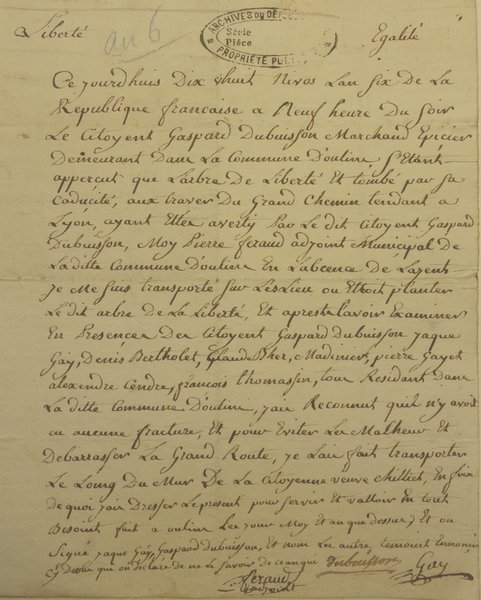 Liberté an 6 Egalité
ARCHIVES DU
Série
Pièce
PROPRIÉTÉ
Ce jourdhuis Dix huit Nivos Lan six de La
Republique francaise a Neuf heure Du soir
Le Citoyent Gaspard Dubuisson Marchand Epicier
Demeurant Dans La Commune Doulins, S'Etant
appercut que Larbre De Liberté Et tombé par sa
Caducité, aux traver Du Grand Chemin tendant a
Lyon, ayant Ettez averty Par Le dit Citoyent Gaspard
Dubuisson, Moy Pierre feraud adjoint Municipal De
La ditte Commune Doulins En Labcence De Lagent
je Me suis transporté sur Les Lieu ou Ettoit planter
Le dit arbre de La Liberté, Et apres Lavoir Examiner
En Presence Du Citoyent Gaspard Dubuisson jaque
Gay, Denis Bertholet, Madinier, pierre Gayet
alexendre Cendre, francois thomasson, tous Residant dans
La ditte Commune Doulins, jais Reconnut quil n'y avoit
eu aucune fracture, Et pour Eviter Les Malheur Et
Debarrasser La Grand Route, je Lais fait transporter
Le Loing Du Mur De La Citoyenne veuve En foix
De quoi jais Dresser Le present pour servir et valloir En tout
Besoint fait a oulins Les jour Moy Et an que dessus, Et on
Signé jaque Gay, Gaspard Dubuisson, Et nom Les autre temoint
Cy dessus qui on declare de ne Le savoir de ce enquis Dubuisson Gay
feraud
adjoint